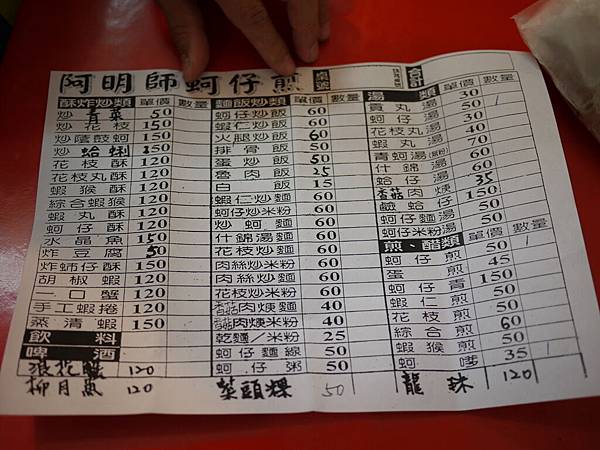 阿明師蚵仔煎 桌號 合計
酥炸炒類 單價 數量
炒青菜 50
炒花枝 150
炒蔭鼓蚵 150
炒蛤蜊 150
花枝酥 120
花枝丸酥 120
蝦猴酥 120
綜合蝦猴 120
蝦丸酥 120
蚵仔酥 120
水晶魚 150
炸豆腐 50
仔酥 150
胡椒蝦 120
一口蟹 120
手工蝦捲 120
蒸清蝦 150
飲料
啤酒
浪花蟹 120
柳月魚 120
麵飯炒類 單價 數量
蚵仔炒飯 60
蝦仁炒飯 60
火腿炒飯 60
排骨飯 50
蛋炒飯 50
魯肉飯 25
白飯 15
蝦仁炒麵 60
蚵仔炒米粉 60
炒蚵麵 60
什錦湯麵 60
花枝炒麵 60
肉絲炒米粉 60
肉絲炒麵 60
花枝炒米粉 60
香菇肉焿麵 40
香菇肉焿米粉 40
乾麵/米粉 25
蚵仔麵線 50
蚵仔粥 50
菜頭粿 50
湯類 單價 數量
貢丸湯 30
蚵仔湯 50
花枝丸湯 30
蝦丸湯 40
青蚵湯 70
什錦湯 60
蛤仔湯 60
香菇肉焿 35
鹹蛤仔 150
蚵仔麵湯 50
蚵仔米粉湯 50
煎、醋類 單價 數量
蚵仔煎 50
蛋煎 45
蚵仔青 150
蝦仁煎 50
花枝煎 50
綜合煎 60
蝦猴煎 50
蚵嗲 35
龍珠 120